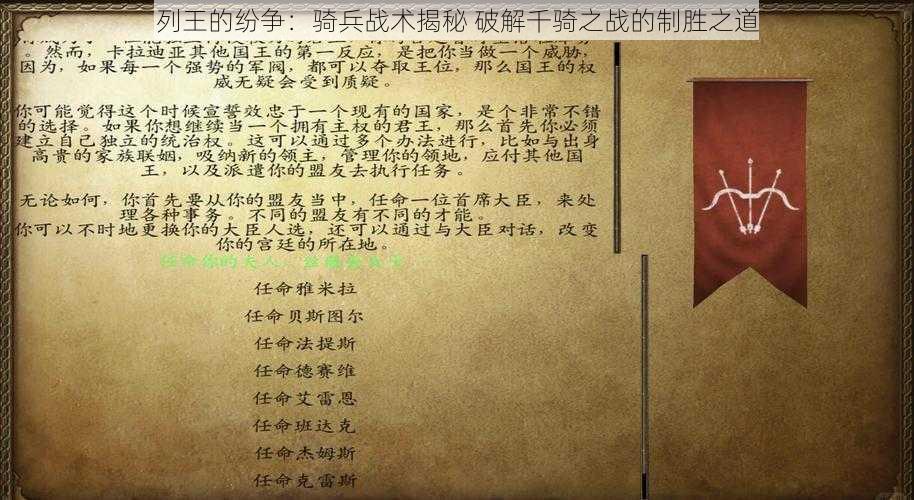 列王的纷争：骑兵战术揭秘 破解千骑之战的制胜之道
。然而，卡拉迪亚其他国王的第一反应，是把你当做一个威胁，
因为，如果每一个强势的军阀，都可以夺取王位，那么国王的权
威无疑会受到质疑。
你可能觉得这个时候宣誓效忠于一个现有的国家，是个非常不错
的选择。如果你想继续当一个拥有主权的君王，那么首先你必须
建立自己独立的统治权。这可以通过多个办法进行，比如与出身
高贵的家族联姻，吸纳新的领主，管理你的领地，应付其他国
王，以及派遣你的盟友去执行任务。
无论如何，你首先要从你的盟友当中，任命一位首席大臣，来处
理各种事务。不同的盟友有不同的才能。
你可以不时地更换你的大臣人选，还可以通过与大臣对话，改变
你的宫廷的所在地。
任命你的夫人，
任命雅米拉
任命贝斯图尔
任命法提斯
任命德赛维
任命艾雷恩
任命班达克
任命杰姆斯
任命克雷斯